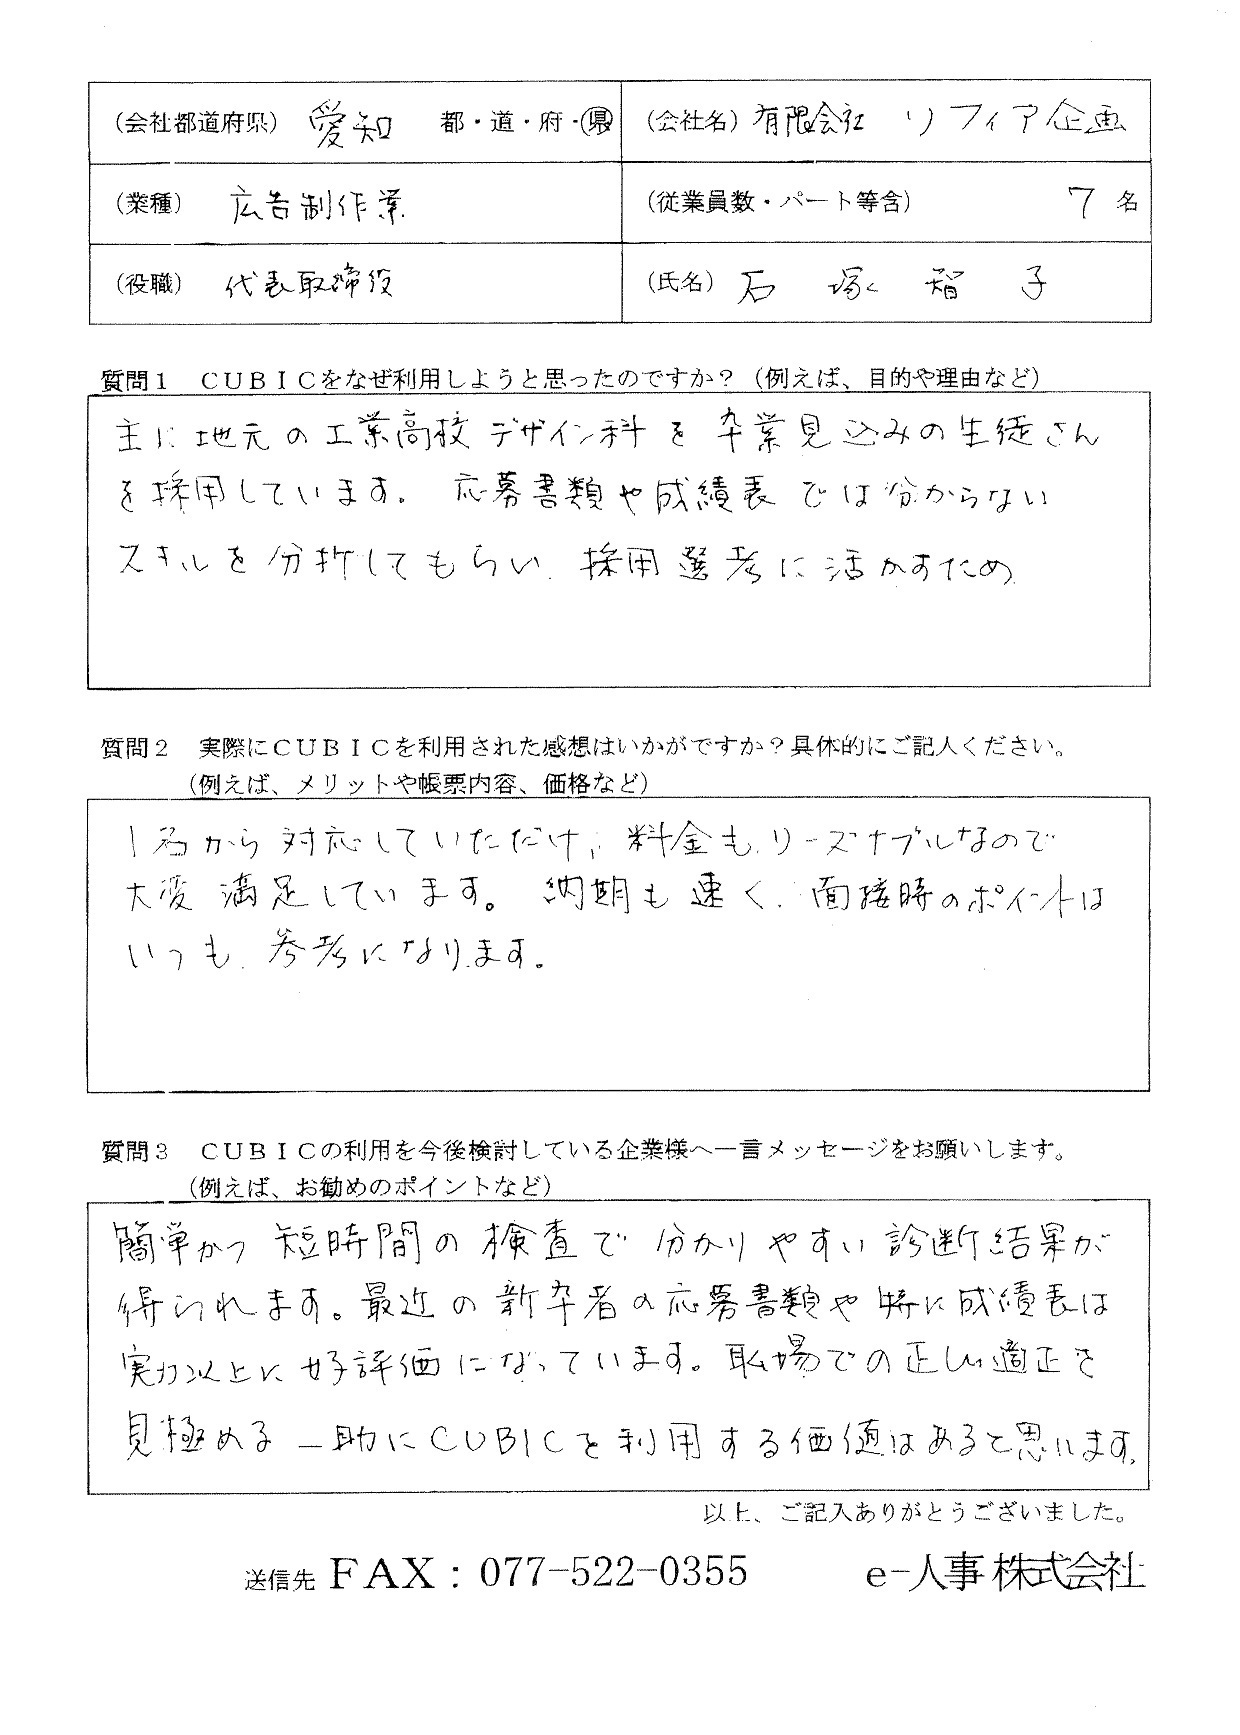 （会社都道府県） 愛知 都・道・府・県 （会社名） 有限会社 リフィア企画
（業種） 広告制作業 （従業員数・パート等含） 7 名
（役職） 代表取締役 （氏名） 石塚 智子
質問１ ＣＵＢＩＣをなぜ利用しようと思ったのですか？（例えば、目的や理由など）
主に地元の工業高校デザイン科を卒業見込みの生徒さん
を採用しています。 応募書類や成績表では分からない
スキルを分析してもらい、採用選考に活かすため
質問２ 実際にＣＵＢＩＣを利用された感想はいかがですか？具体的にご記入ください。
（例えば、メリットや帳票内容、価格など）
1名から対応していただけ、料金も、リーズナブルなので
大変満足しています。 納期も速く、面接時のポイントは
いつも、参考になります。
質問３ ＣＵＢＩＣの利用を今後検討している企業様へ一言メッセージをお願いします。
（例えば、お勧めのポイントなど）
簡単かつ短時間の検査で分かりやすい診断結果が
得られます。最近の新卒者の応募書類や特に成績表は
実力以上に好評価になっています。職場での正しい適正を
見極める一助にCUBICを利用する価値はあると思います。
以上、ご記入ありがとうございました。
送信先 ＦＡＸ：077-522-0355 e-人事株式会社